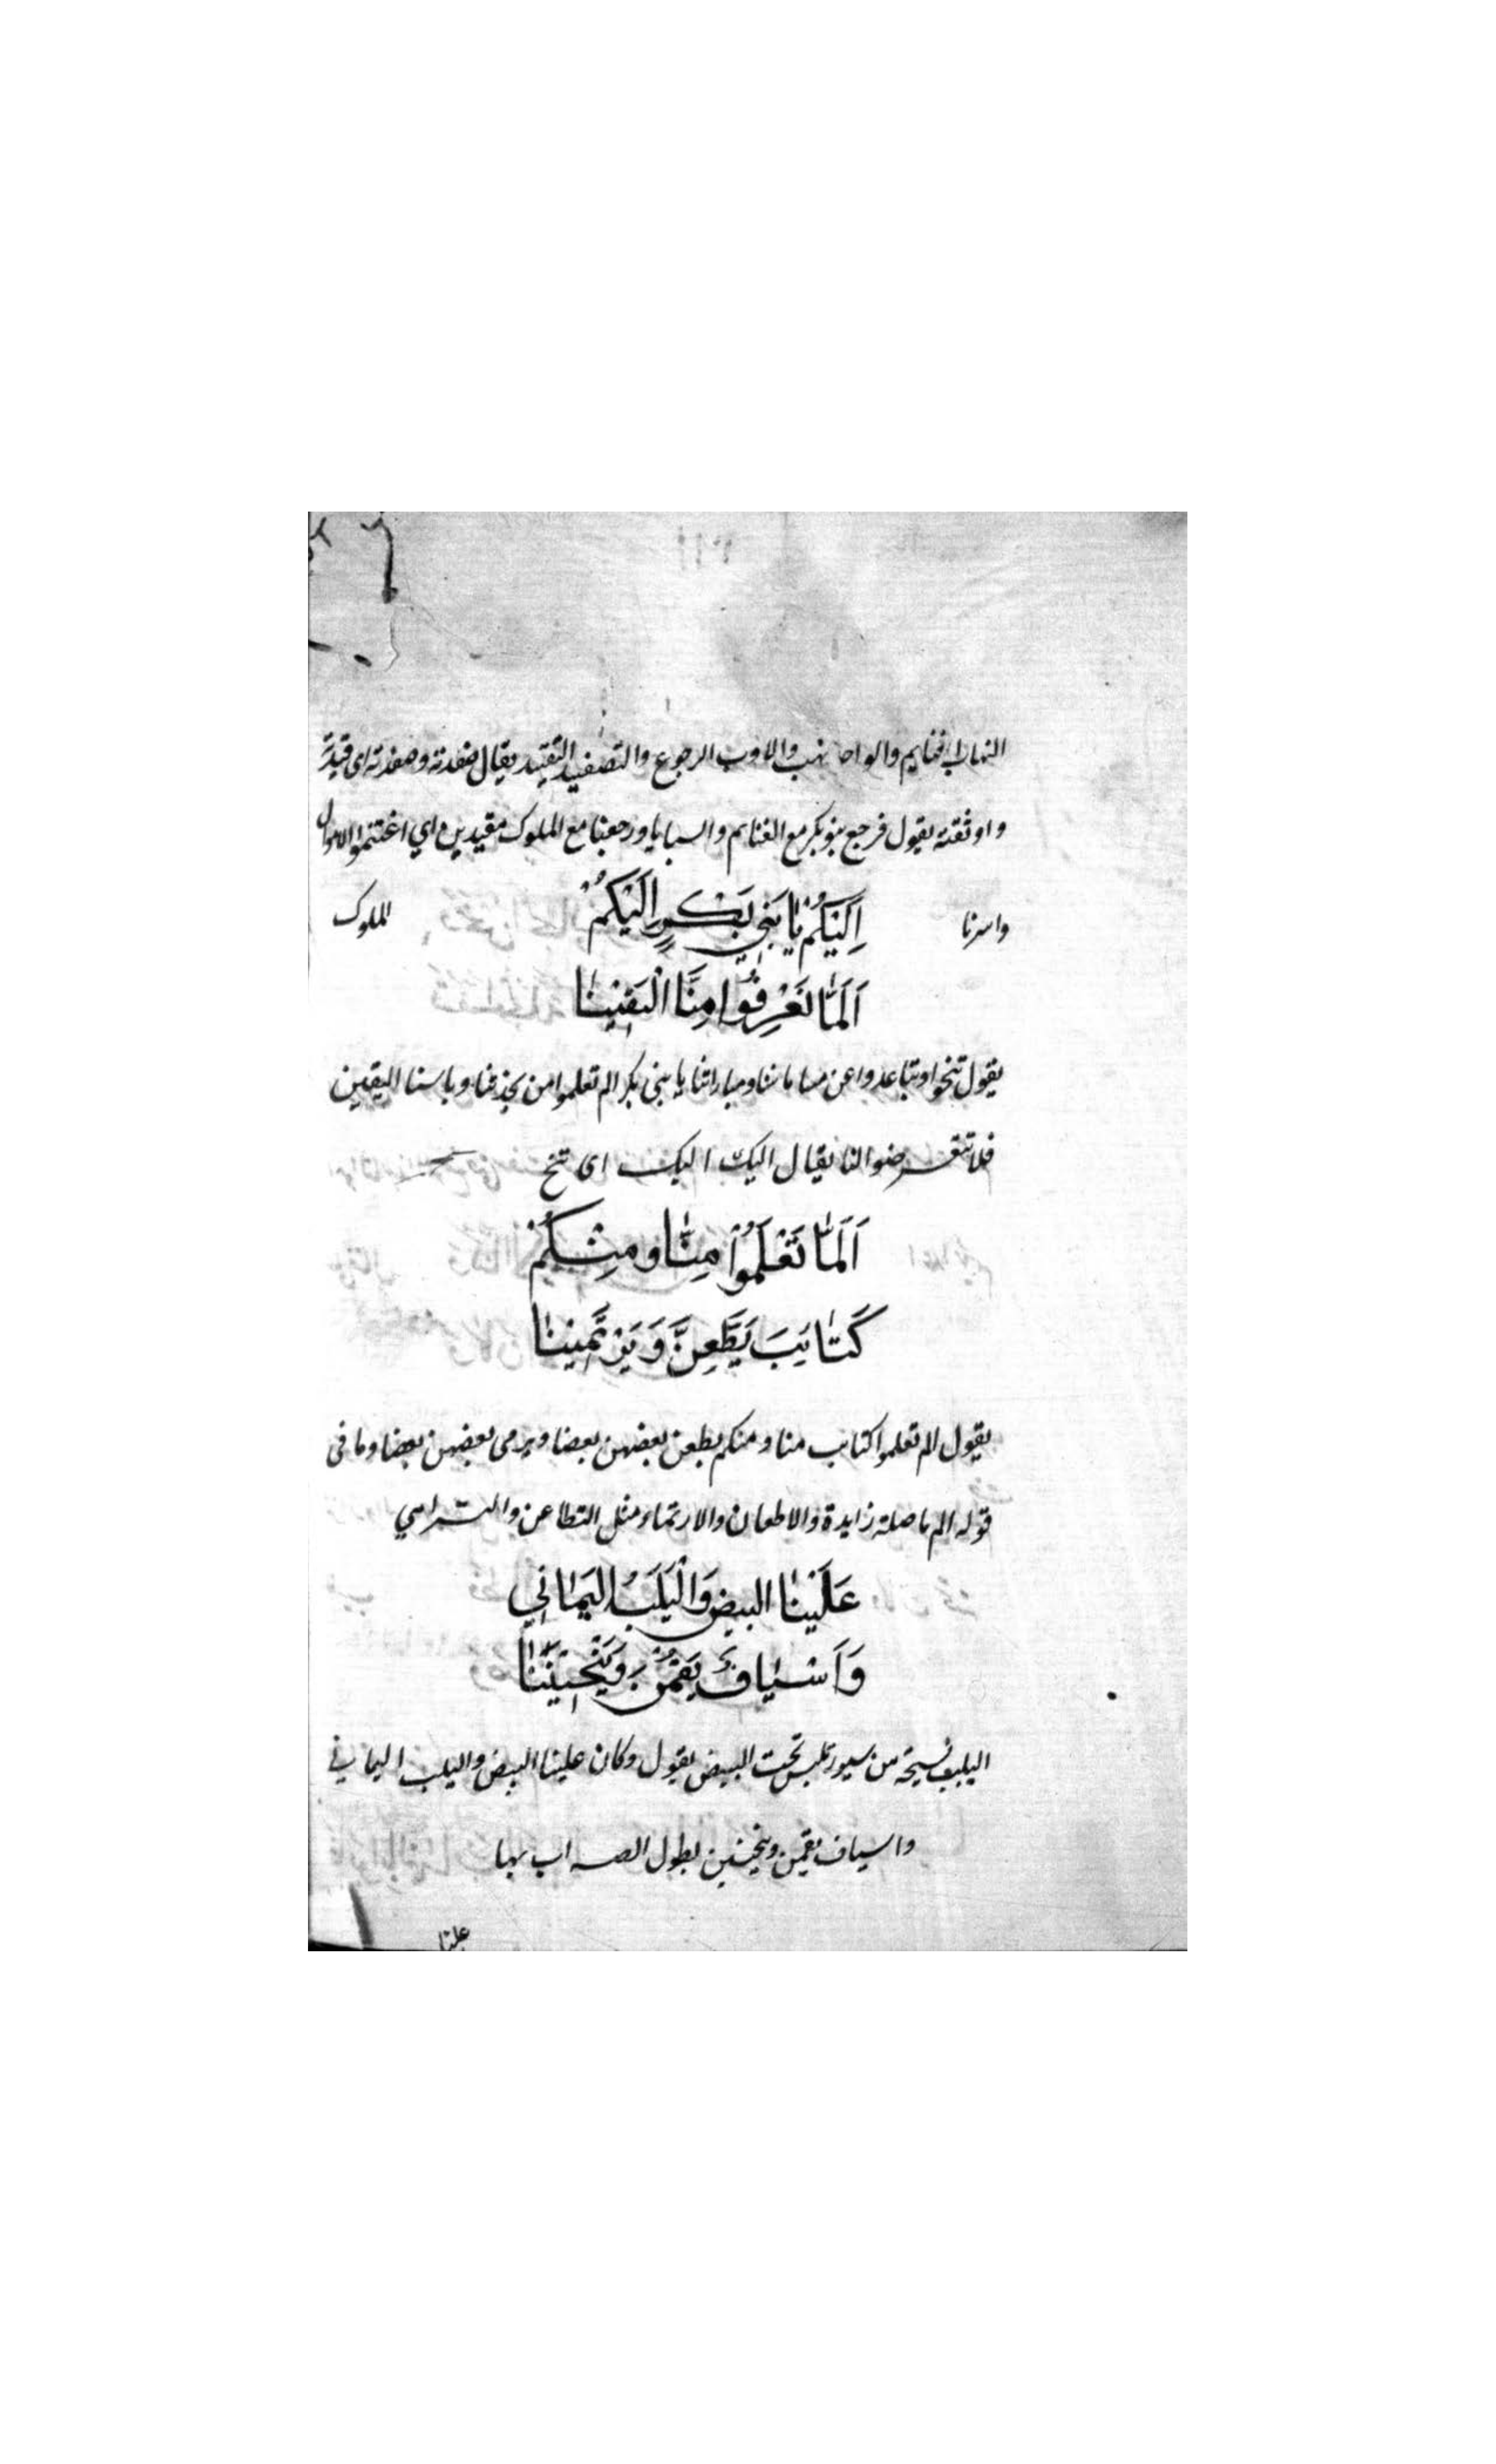 النهاب الغنايم والواحد نهب والاوب الرجوع والتصفيد التقييد يقال صفدته وصفدته اى قيدته
واوثقته يقول فرجع بنو بكر مع الغنايم والسبايا ورجعنا مع الملوك مقيدين اي اغتنموا الاموال
واسرنا اِلَيْكُمْ يَا بَنِي بَكْرٍ اِلَيْكُمْ الملوك
اَلَمَّا تَعْرِفُوا مِنَّا الْيَقِينَا
يقول تنحوا وتباعدوا عن مساماتنا ومباراتنا يا بنى بكر الم تعلموا من نجدتنا وباسنا اليقين
فلا تتعرضوا لنا يقال اليك اليك اى تنح
اَلَمَّا تَعْلَمُوا مِنَّا وَمِنْكُمْ
كَتَايِبَ يَطَّعِنَّ وَيَرْتَمِينَا
يقول الم تعلموا كتايب منا ومنكم يطعن بعضهن بعضا ويرمى بعضهن بعضا وما فى
قوله الم ما صلة زايدة والاطعان والارتماء مثل التطاعن والترامي
عَلَيْنَا البيض وَالْيَلَبُ اليَمَانِي
وَاَسْيَافٌ يَقُمْنَ وَيَنْحَنِينَا
اليلب نسيجة من سيور تلبس تحت البيض يقول وكان علينا البيض واليلب اليماني
واسياف يقمن وينحنين لطول الضراب بها
علينا